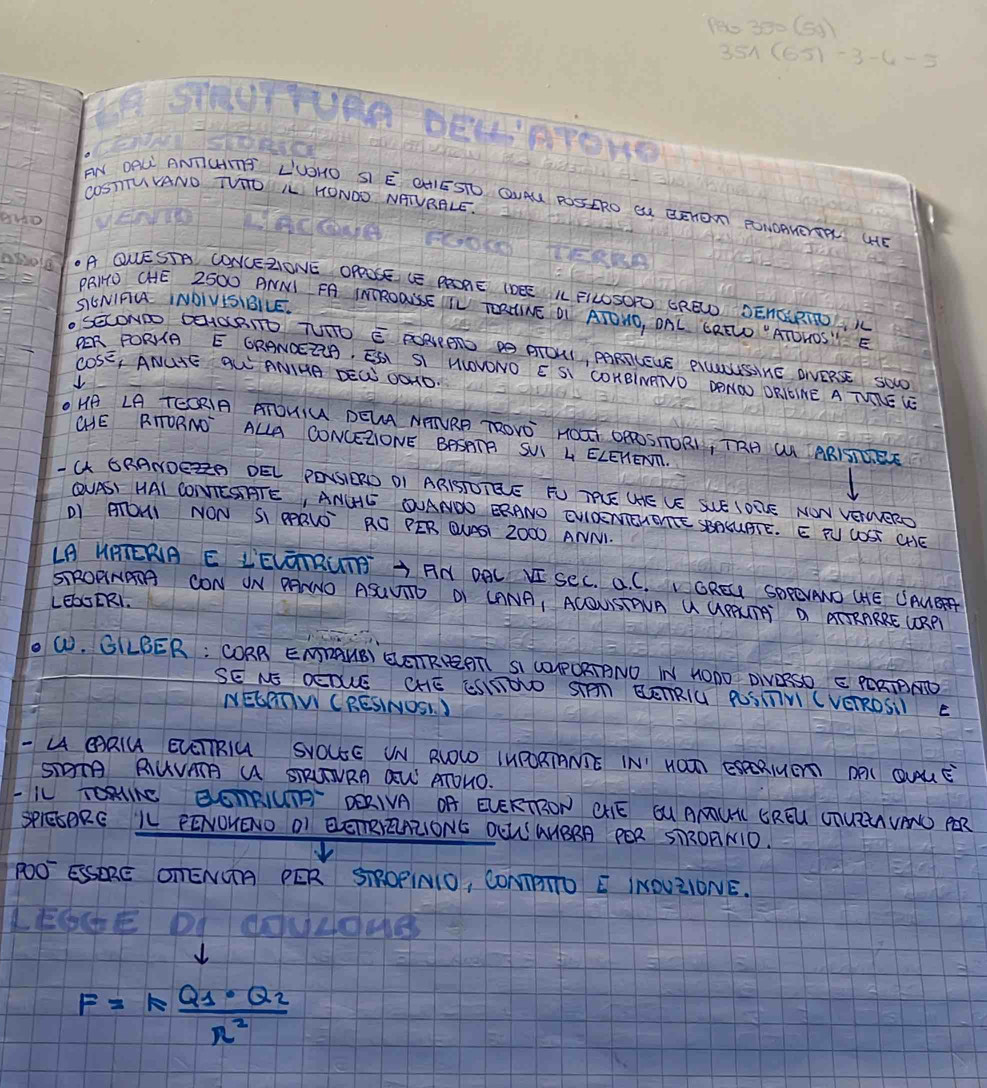 PAG 350 (50)
351 (65) - 3 - 4 - 5
LA STRUTTURA DELL'ATOMO
• CENNI STORICI
FIN DALL' ANTICHITÀ L'UOMO SI È CHIESTO QUALI FOSSERO GLI ELEMENTI FONDAMENTALI CHE
COSTITUIVANO TUTTO IL MONDO NATURALE.
VENTO L'ACQUA FUOCO TERRA
• A QUESTA CONCEZIONE OPPOSE LE PROPRIE IDEE IL FILOSOFO GRECO DEMOCRITO, IL
PRIMO CHE 2500 ANNI FA INTRODUSSE IL TERMINE DI ATOMO, DAL GRECO "ATOMOS" E
SIGNIFICA INDIVISIBILE.
• SECONDO DEMOCRITO TUTTO È FORMATO DA ATOMI, PARTICELLE PICCOLISSIME DIVERSE SOLO
PER FORMA E GRANDEZZA. ESSI SI MUOVONO E SI COMBINANO DANDO ORIGINE A TUTTE LE
COSE, ANCHE ALL' ANIMA DELL' UOMO.
↓
• MA LA TEORIA ATOMICA DELLA NATURA TROVÒ MOLTI OPPOSITORI, TRA CUI ARISTOTELE
CHE RITORNÒ ALLA CONCEZIONE BASATA SUI 4 ELEMENTI.
↓
- LA GRANDEZZA DEL PENSIERO DI ARISTOTELE FU TALE CHE LE SUE IDEE NON VENNERO
QUASI MAI CONTESTATE, ANCHE QUANDO ERANO EVIDENTEMENTE SBAGLIATE. E FU COSÌ CHE
DI ATOMI NON SI PARLÒ PIÙ PER QUASI 2000 ANNI.
LA MATERIA E L'ELETTRICITÀ → FIN DAL VI SEC. a.C. I GRECI SAPEVANO CHE L'AMBRA
STROFINATA CON UN PANNO ASCIUTTO DI LANA, ACQUISTAVA LA CAPACITÀ DI ATTRARRE CORPI
LEGGERI.
• W. GILBER: CORPI ENTRAMBI ELETTRIZZATI SI COMPORTANO IN MODO DIVERSO E PERTANTO
SE NE DEDUCE CHE ESISTONO STATI ELETTRICI POSITIVI (VETROSI) E
NEGATIVI (RESINOSI)
- LA CARICA ELETTRICA SVOLGE UN RUOLO IMPORTANTE IN MOLTI ESPERIMENTI DAI QUALI È
STATA RICAVATA LA STRUTTURA DELL' ATOMO.
- IL TERMINE ELETTRICITÀ DERIVA DA ELEKTRON CHE GLI ANTICHI GRECI UTILIZZAVANO PER
SPIEGARE IL FENOMENO DI ELETTRIZZAZIONE DELL'AMBRA PER STROFINIO.
↓
PUÒ ESSERE OTTENUTA PER STROFINIO, CONTATTO E INDUZIONE.
LEGGE DI COULOMB
↓
F = K Q1 • Q2 / r²